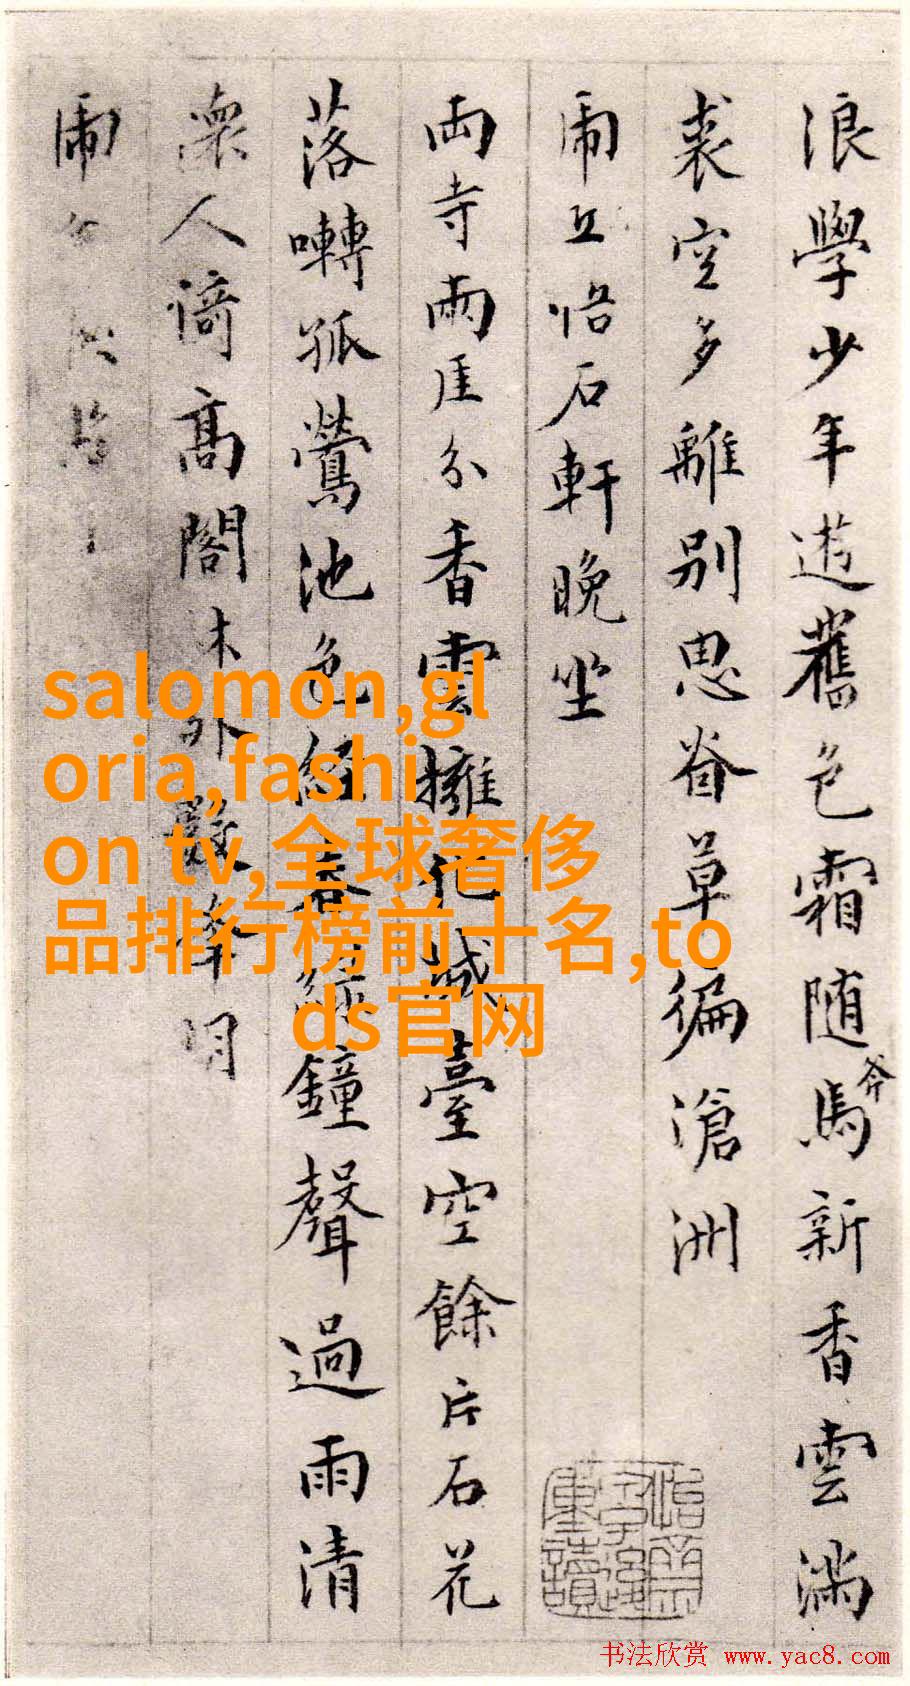 浪學少年遊舊色霜随馬新香雲滿
斧
裘空多離別思眷草徧滄洲
丘悟石軒晚坐
両寺兩厓分香雲擁化城臺空餘片石花
落囀孤鶯池色經春綠鐘聲過雨清
人倚高閣外峯明
salomon,gl
oria,fashi
on tv,全球奢侈
品排行榜前十名,to
ds官网
书法欣赏 www.yac8.com